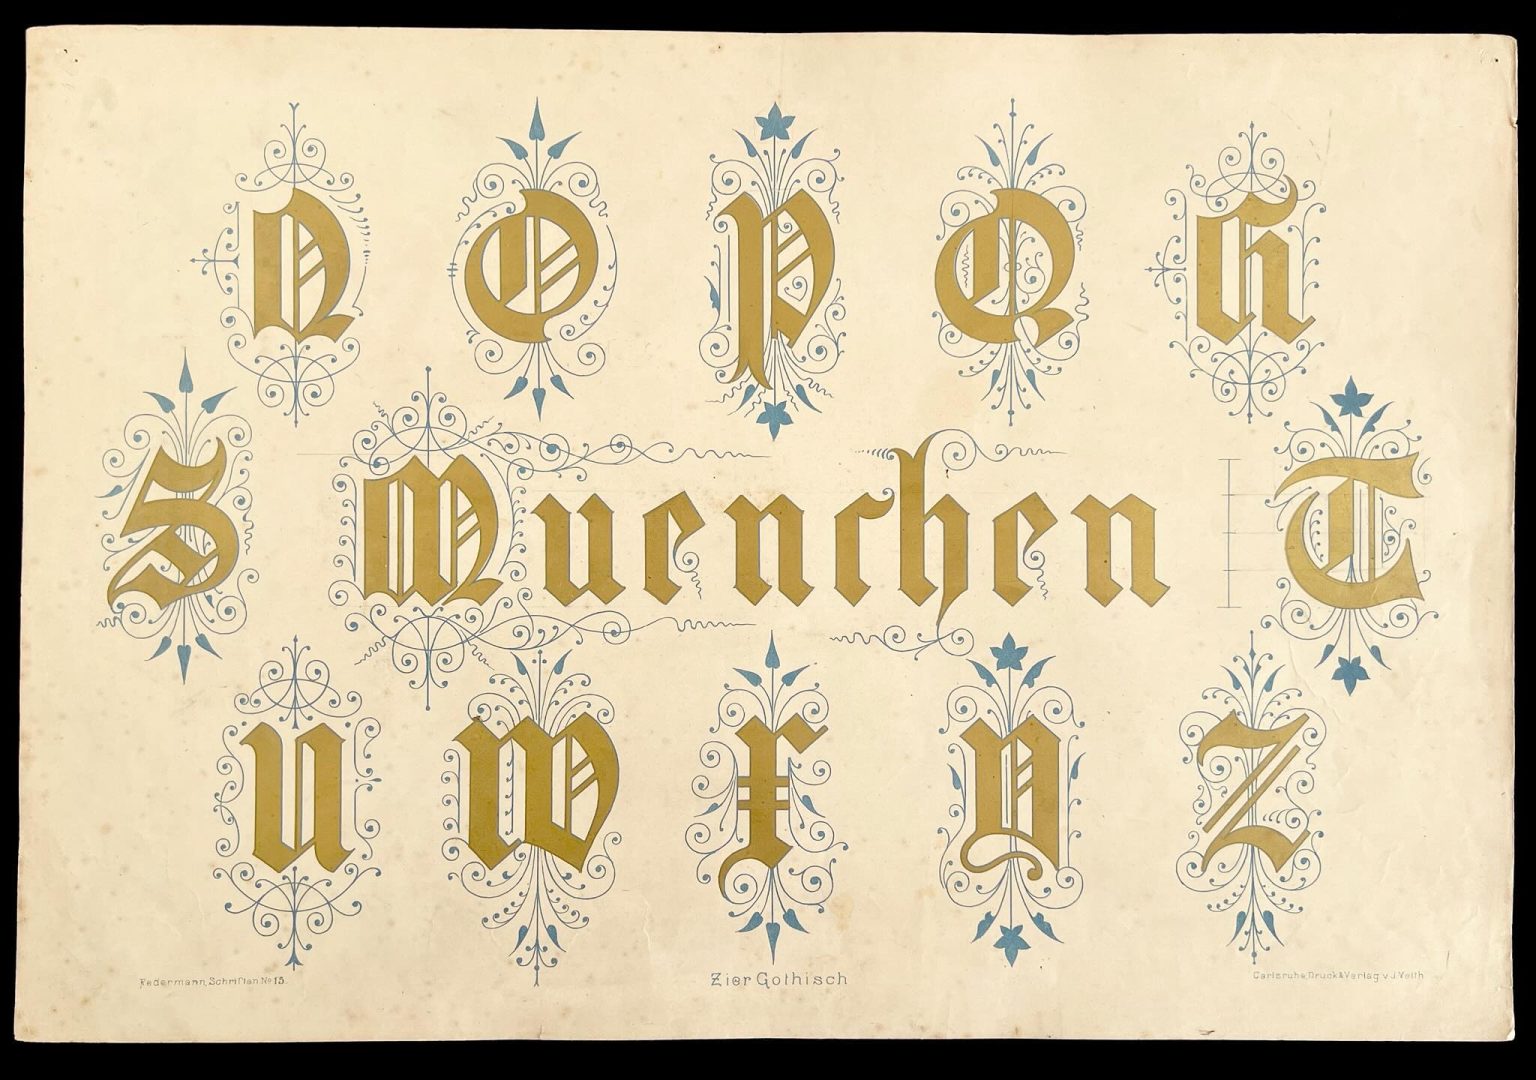 N O P Q R
S Muenchen T
U W X Y Z
Federmann, Schriften No 15.
Zier Gothisch
Carlsruhe, Druck & Verlag v. J. Veith